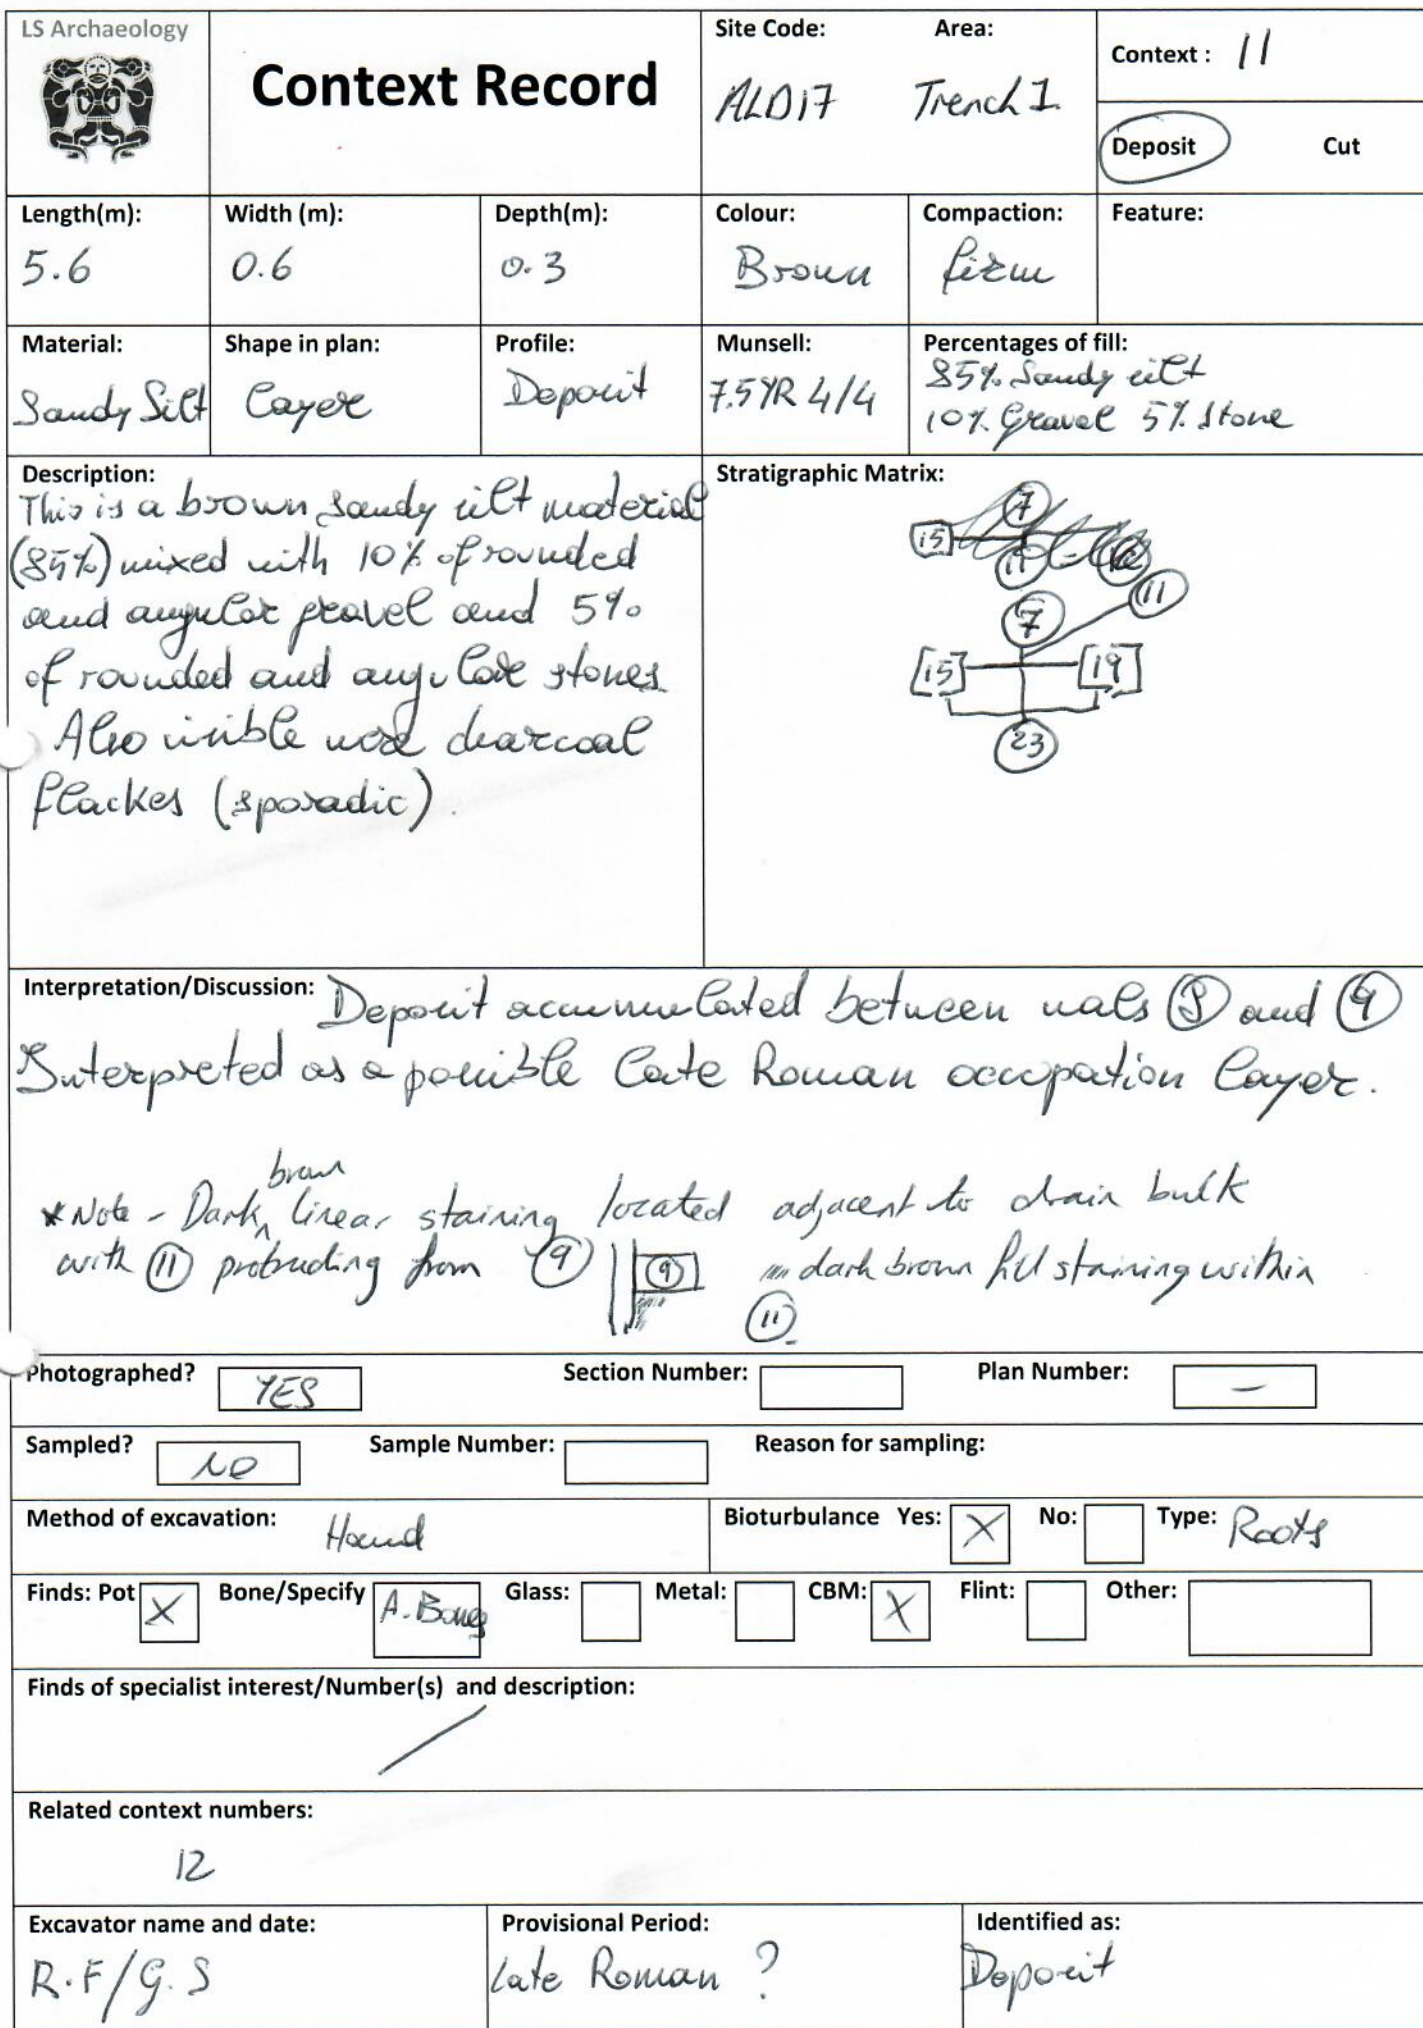 LS Archaeology
Context Record
Site Code: Area:
ALD17 Trench 1
Context : 11
Deposit Cut
Length(m): Width (m): Depth(m): Colour: Compaction: Feature:
5.6 0.6 0.3 Brown firm
Material: Shape in plan: Profile: Munsell: Percentages of fill:
Sandy Silt Layer Deposit 7.5YR 4/4 85% Sandy silt
10% Gravel 5% Stone
Description:
This is a brown sandy silt material
(85%) mixed with 10% of rounded
and angular gravel and 5%
of rounded and angular stones.
Also visible were charcoal
flackes (sporadic).
Stratigraphic Matrix:
7
15
11
7
[15] [19]
23
Interpretation/Discussion: Deposit accumulated between wals 8 and 9
Interpreted as a possible Late Roman occupation layer.
brown
*Note - Dark linear staining located adjacent to drain bulk
with 11 protruding from 9 9 dark brown fill staining within
11
Photographed? YES Section Number: Plan Number: –
Sampled? NO Sample Number: Reason for sampling:
Method of excavation: Hand Bioturbulance Yes: X No: Type: Roots
Finds: Pot X Bone/Specify A. Bones Glass: Metal: CBM: X Flint: Other:
Finds of specialist interest/Number(s) and description:
/
Related context numbers:
12
Excavator name and date: Provisional Period: Identified as:
R.F/G.S Late Roman ? Deposit